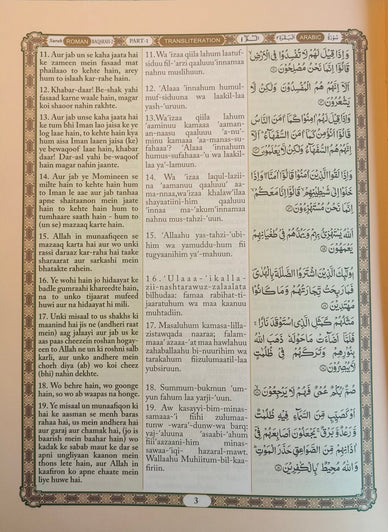 Surah ROMAN BAQARAH 2 PART-1 TRANSLITERATION ARABIC
11. Aur jab un se kaha jaata hai
ke zameen mein fasaad mat
phailaao to kehte hain, arey
hum to islaah kar-rahe hain.
12. Khabar-daar! Be-shak yahi
fasaad karne waale hain, magar
koi shaoor nahin rakhte.
13. Aur jab unse kaha jaata hai
ke tum bhi Iman lao jaisa ke yeh
log laae hain, to kehte hain kya
hum aisa Iman laaen jaisa (ke)
ye bewaqoof laae hain, khabar
daar! Dar-asl yahi be-waqoof
hain magar nahin jaante.
14. Aur jab ye Momineen se
milte hain to kehte hain hum
to Iman le aae aur jab tanhaa
apne shaitaanon mein jaate
to kehte hain - hum to
tumhaare saath hain - hum to
(un se) mazaaq karte hain.
15. Allah in munafiqeen se
mazaaq karta hai aur wo unki
rassi daraaz kar-raha hai taake
sharaarat aur sarkashi mein
bhatakte rahein.
16. Ye wohi hain jo hidaayat ke
badle gumraahi khareedte hain,
na to unko tijaarat mufeed
huwi aur na hidaayat hi mili.
17. Unki misaal to us shakhs ki
maanind hai jis ne (andheri raat
mein) aag jalaayi aur jab us ke
aas paas cheezein roshan hogay-
een to Allah ne un ki roshni salb
karli, aur unko andhere mein
chorh diya (ab) wo koi cheez
(bhi) nahin dekhte.
18. Wo behre hain, wo goonge
hain, so wo ab waapas na honge.
19. Ye misaal un munafiqeen ki
hai ke aasman se menh baras
raha hai, us mein andhera hai
aur garaj aur chamak hai, (jo is
baarish mein baahar hain) wo
kadak ke sabab maut ke dar se
apni ungliyaan kaanon mein
thons lete hain, aur Allah in
kaafiron ko apne ehaate mein
liye huwe hai.
11. Wa 'izaa qiila lahum laatuf-
siduu fil-'arzi qaaluuu'innamaa
nahnu muslihuun.
12. 'Alaaa 'innahum humul-
mufsiduuna wa laakil-laa
yash-'uruun.
13.Wa'izaa qiila lahum
'aaminuu kamaaa 'aama-
an-naasu qaaluuu 'a-nu'-
minu kamaaa 'aa-manas-su-
fahaaa? 'Alaaa 'innahum
humus-sufahaaa-'u wa laakil-
laa ya'-lamuun.
14. Wa 'izaa laqul-lazii-
na 'aamanuu qaaluuu 'aa-
ma-nnaa,wa 'izaa khalaw'ilaa
shayaatiini-him qaaluuu
'innaa ma-'akum'innamaa
nahnu mus-tahzi-'uun.
15. 'Allaahu yas-tahzi-'ubi-
him wa yamuddu-hum fii
tugyaanihim ya'-mahuun.
16.'Ulaaa-'ikalla-
ziinashtarawuz-zalaalata
bilhudaa; famaa rabihat-ti-
jaaratuhum wa maa kaanuu
muhtadiin.
17. Masaluhum kamasa-lilla-
zistawqada naaraa; falam-
maaa 'azaaa-'at maa hawlahuu
zahaballaahu bi-nuurihim wa
tarakahum fiizulumaatil-laa
yubsiruun.
18. Summum-bukmun 'um-
yun fahum laa yarji-'uun.
19. Aw kasayyi-bim-minas-
samaaa-'i fiihi zulumaa-
tunw-wara'-dunw-wa barq;
yaj-'aluuna 'asaabi-'ahum
fiii'aazaani-him minas-
sawaa-'iqi hazaral-mawt.
Wallaahu Muhiitum-bil-kaa-
firiin.
وَإِذَا قِيلَ لَهُمْ لَا تُفْسِدُوا فِي الْأَرْضِ
قَالُوا إِنَّمَا نَحْنُ مُصْلِحُونَ ⑪
أَلَا إِنَّهُمْ هُمُ الْمُفْسِدُونَ وَلَٰكِن لَّا
يَشْعُرُونَ ⑫
وَإِذَا قِيلَ لَهُمْ آمِنُوا كَمَا آمَنَ النَّاسُ
قَالُوا أَنُؤْمِنُ كَمَا آمَنَ السُّفَهَاءُ أَلَا
إِنَّهُمْ هُمُ السُّفَهَاءُ وَلَٰكِن لَّا يَعْلَمُونَ ⑬
وَإِذَا لَقُوا الَّذِينَ آمَنُوا قَالُوا آمَنَّا وَإِذَا
خَلَوْا إِلَىٰ شَيَاطِينِهِمْ قَالُوا إِنَّا مَعَكُمْ
إِنَّمَا نَحْنُ مُسْتَهْزِئُونَ ⑭
اللَّهُ يَسْتَهْزِئُ بِهِمْ وَيَمُدُّهُمْ فِي طُغْيَانِهِمْ
يَعْمَهُونَ ⑮
أُولَٰئِكَ الَّذِينَ اشْتَرَوُا الضَّلَالَةَ بِالْهُدَىٰ
فَمَا رَبِحَت تِّجَارَتُهُمْ وَمَا كَانُوا
مُهْتَدِينَ ⑯
مَثَلُهُمْ كَمَثَلِ الَّذِي اسْتَوْقَدَ نَارًا
فَلَمَّا أَضَاءَتْ مَا حَوْلَهُ ذَهَبَ اللَّهُ
بِنُورِهِمْ وَتَرَكَهُمْ فِي ظُلُمَاتٍ
لَّا يُبْصِرُونَ ⑰
صُمٌّ بُكْمٌ عُمْيٌ فَهُمْ لَا يَرْجِعُونَ ⑱
أَوْ كَصَيِّبٍ مِّنَ السَّمَاءِ فِيهِ ظُلُمَاتٌ
وَرَعْدٌ وَبَرْقٌ يَجْعَلُونَ أَصَابِعَهُمْ فِي
آذَانِهِم مِّنَ الصَّوَاعِقِ حَذَرَ الْمَوْتِ
وَاللَّهُ مُحِيطٌ بِالْكَافِرِينَ ⑲
3